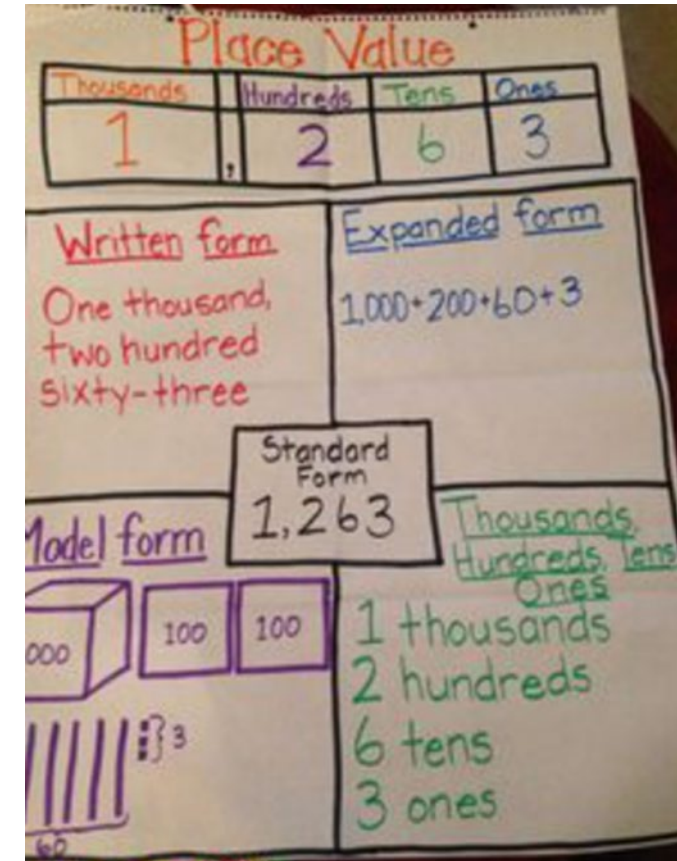 Place Value
Thousands Hundreds Tens Ones
1 , 2 6 3
Written form
One thousand,
two hundred
sixty-three
Expanded form
1,000+200+60+3
Standard
Form
1,263
Model form
000 100 100
3
60
Thousands,
Hundreds, Tens
Ones
1 thousands
2 hundreds
6 tens
3 ones